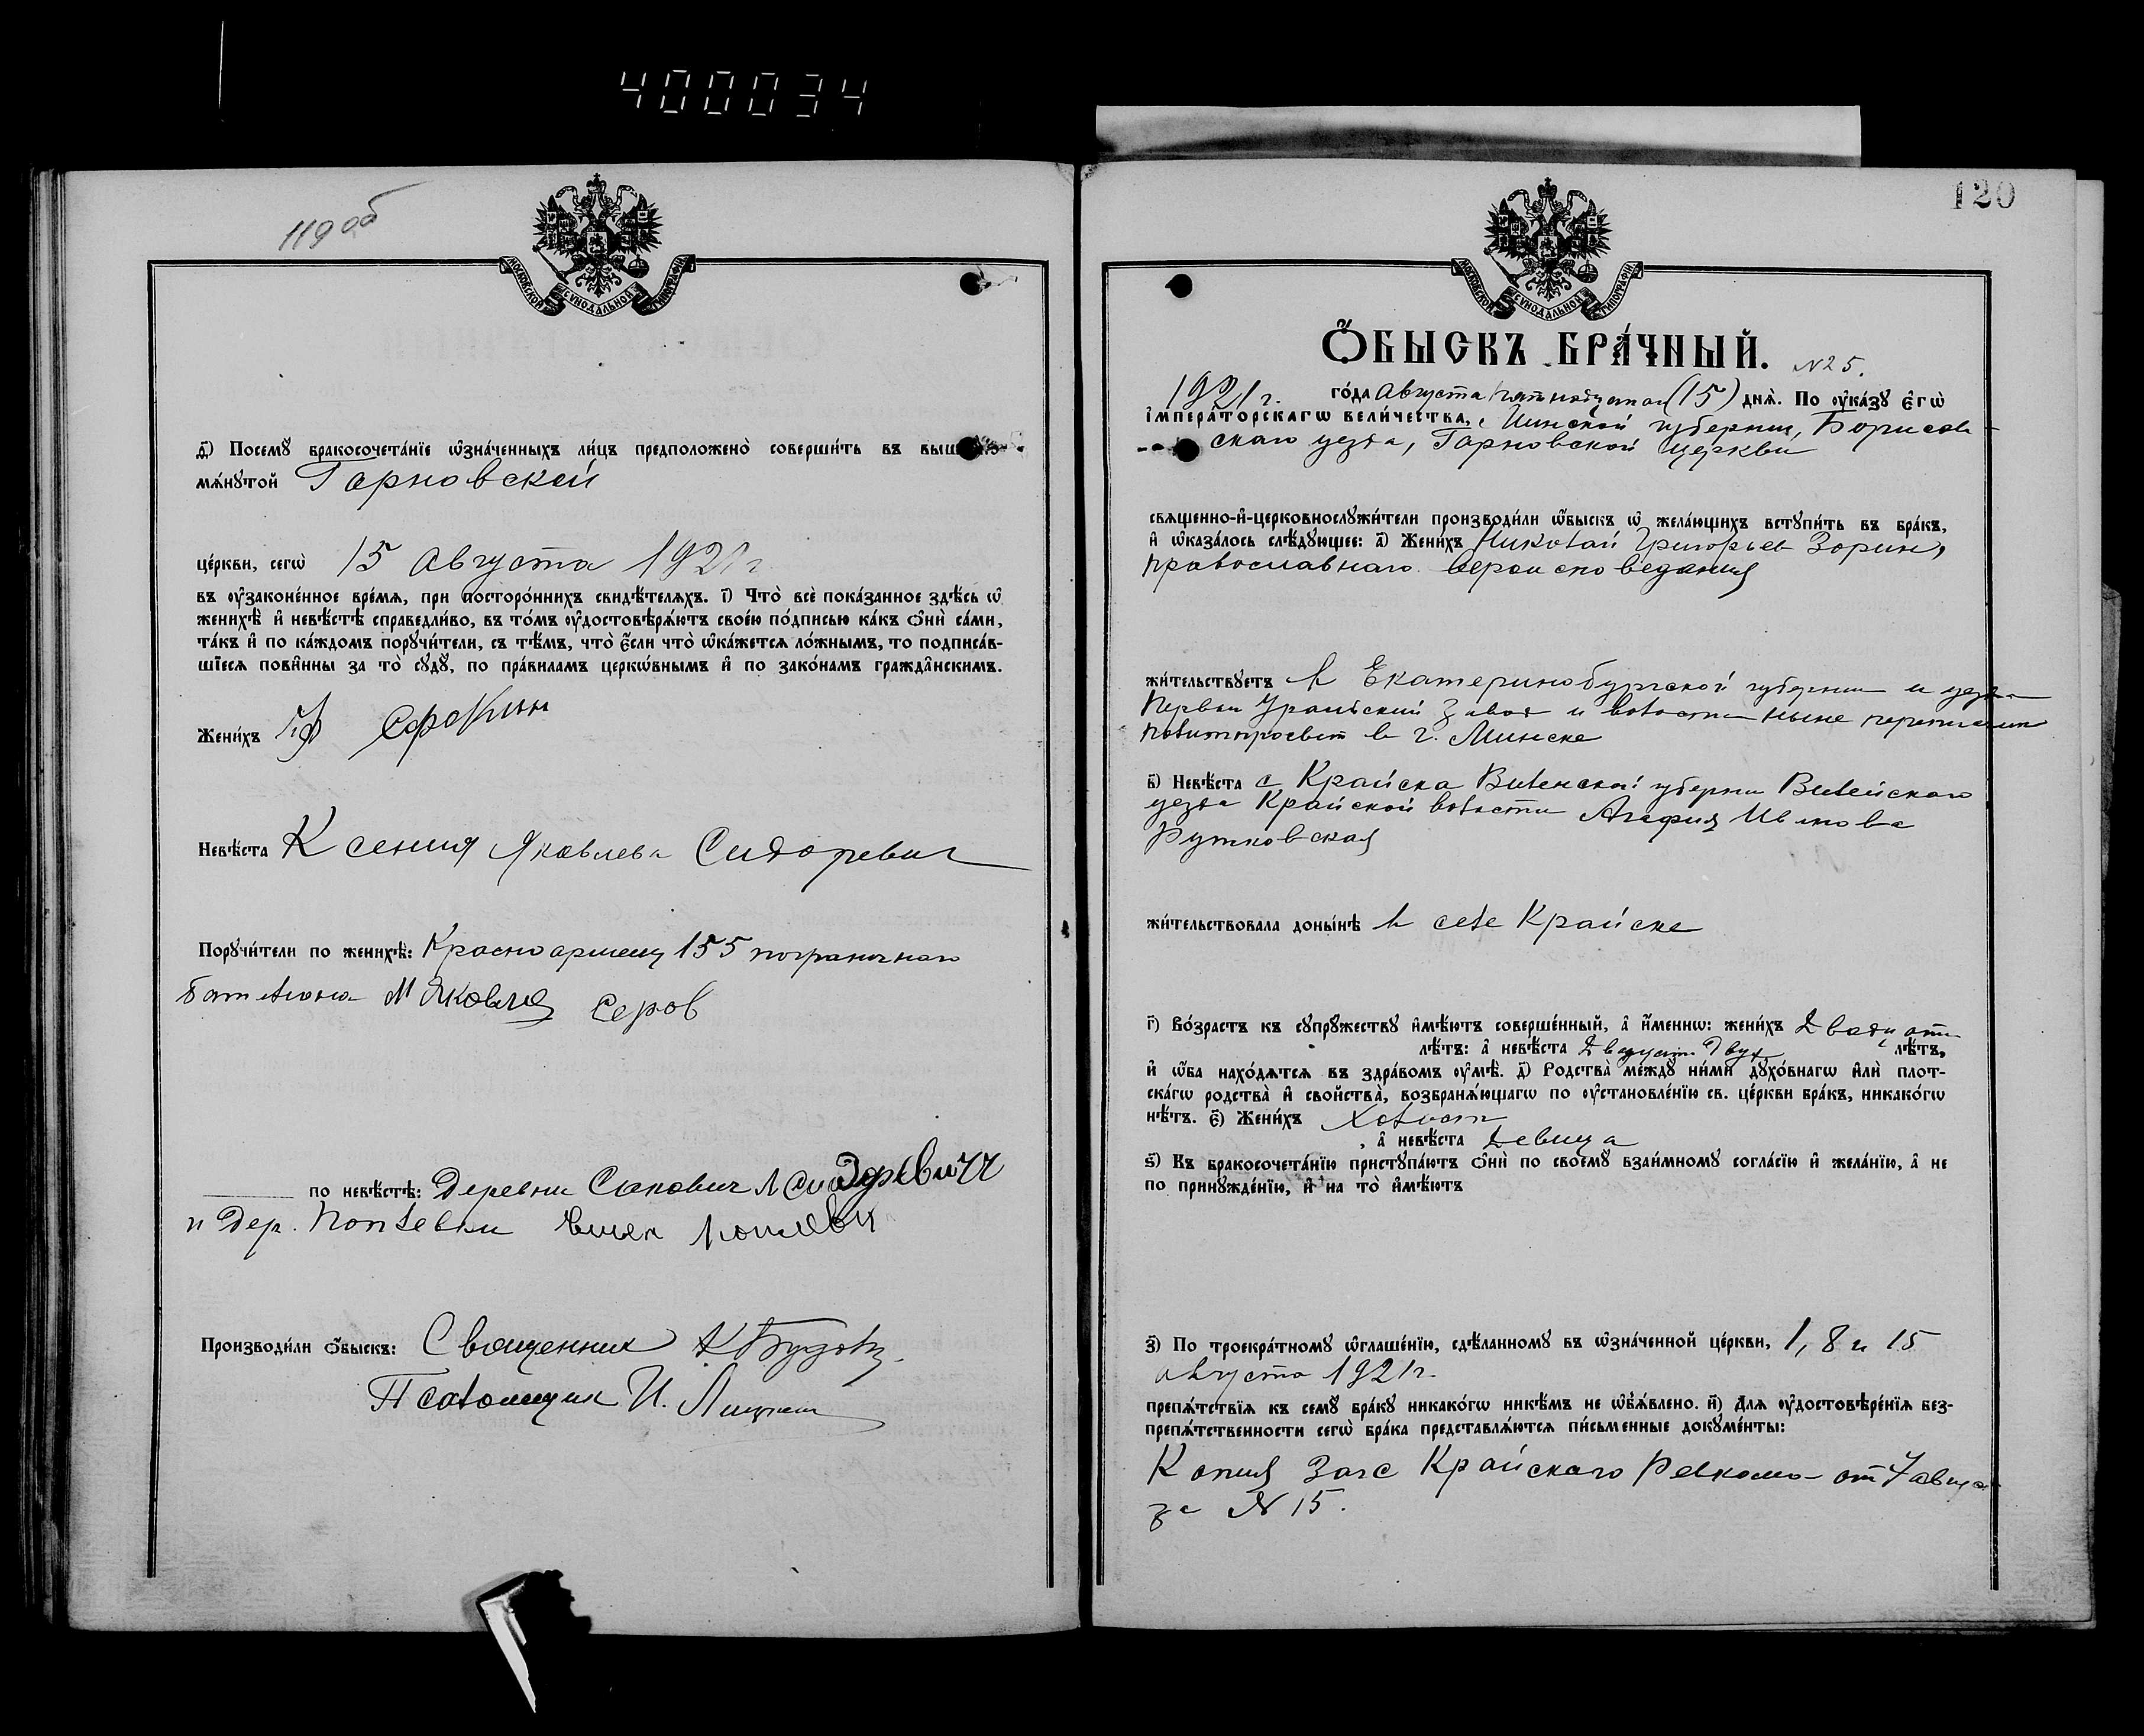 400034
119 об
МОСКОВСКОЙ СѴНОДАЛЬНОЙ ТИПОГРАФІИ
д҃) Посемꙋ̀ бракосочета́нїе ѡ҆зна́ченныхъ ли́цъ предположено̀ соверши́ть въ вы
мѧ́нꙋтой Гарновской
це́ркви, сегѡ̀ 15 августа 1921 г
въ ᲂу҆зако́ненное вре́мѧ, при посторо́ннихъ свидѣ́телѧхъ. і҃) Что̀ всѐ пока́занное здѣ́сь ѡ҆
женихѣ̀ и҆ невѣ́стѣ справедли́во, въ то́мъ ᲂу҆достовѣрѧ́ютъ свое́ю по́дписью ка́къ ѻ҆нѝ са́ми,
та́къ и҆ по ка́ждомъ порꙋчи́тели, съ тѣ́мъ, что̀ є҆́сли что̀ ѡ҆ка́жется ло́жнымъ, то подписа́в-
шїесѧ пови́нны за то̀ сꙋдꙋ̀, по пра́виламъ церкѡ́внымъ и҆ по зако́намъ гражда́нскимъ.
Жени́хъ
Невѣ́ста Ксения Яковлева Сидоревич
Порꙋчи́тели по женихѣ̀: Красноармеец 155 пограничного
баталиона М Яковлев Серов
по невѣ́стѣ: Деревни Сидоревичъ
и дер.
Производи́ли ѻ҆́быскъ: Священник К
Псаломщик И.
120
МОСКОВСКОЙ СѴНОДАЛЬНОЙ ТИПОГРАФІИ
Ѻ҆́БЫСКЪ БРА́ЧНЫЙ. N 25.
1921 г. го́да августа пятнадцатого (15) днѧ̀. По ᲂу҆ка́зꙋ є҆гѡ̀
і҆мпера́торскагѡ вели́чества, Минской губернии, Борисов-
скаго уезда, Гарновской церкви
свѧщенно-и҆-церковнослꙋжи́тели производи́ли ѡ҆́быскъ ѡ҆ жела́ющихъ встꙋпи́ть въ бра́къ,
и҆ ѡ҆каза́лось слѣ́дꙋющее: а҃) Жени́хъ Николай Григорьев Зорин,
православнаго вероисповедания
жи́тельствꙋетъ в Екатеринобургской губернии и уезда
Перво Уральский завод и волости ныне
в г. Минске
в҃) Невѣ́ста с Крайска Виленской губернии Вилейского
уезда Крайской волости Агафия Иванова
Рутковская
жи́тельствовала доны́нѣ в селе Крайске
г҃) Во́зрастъ къ сꙋпрꙋ́жествꙋ и҆мѣ́ютъ соверше́нный, а҆ и҆́меннѡ: жени́хъ двадцати
лѣ́тъ: а҆ невѣ́ста двадцати двух лѣ́тъ,
и҆ ѡ҆́ба нахо́дѧтсѧ въ здра́вомъ ᲂу҆мѣ̀. д҃) Родства̀ междꙋ̀ ни́ми дꙋхо́внагѡ и҆лѝ плот-
ска́гѡ родства̀ и҆ свойства̀, возбранѧ́ющагѡ по ᲂу҆становле́нїю св. це́ркви бра́къ, никако́гѡ
нѣ́тъ. є҃) Жени́хъ Холост
, а҆ невѣ́ста Девица
ѕ҃) Къ бракосочета́нїю пристꙋпа́ютъ ѻ҆нѝ по своемꙋ̀ взаи́мномꙋ согла́сїю и҆ жела́нїю, а҆ не
по принꙋжде́нїю, и҆ на то̀ и҆мѣ́ютъ
з҃) По троекра́тномꙋ ѡ҆глаше́нїю, сдѣ́ланномꙋ въ ѡ҆зна́ченной це́ркви, 1, 8 и 15
августа 1921 г.
препѧ́тствїѧ къ семꙋ̀ бра́кꙋ никако́гѡ никѣ́мъ не ѡ҆б̾ѧ́влено. и҃) Длѧ ᲂу҆достовѣре́нїѧ без-
препѧ́тственности сегѡ̀ бра́ка представлѧ́ютсѧ пи́сьменные докꙋме́нты:
Копия Загс Крайскаго Ревкома от 7 августа
за N 15.